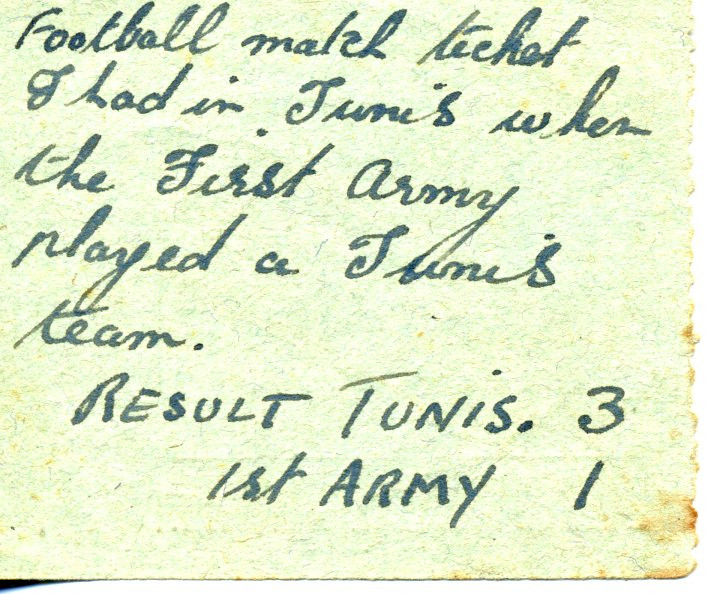 Football match ticket
I had in Tunis when
the First Army
played a Tunis
team.
RESULT TUNIS. 3
1st ARMY 1